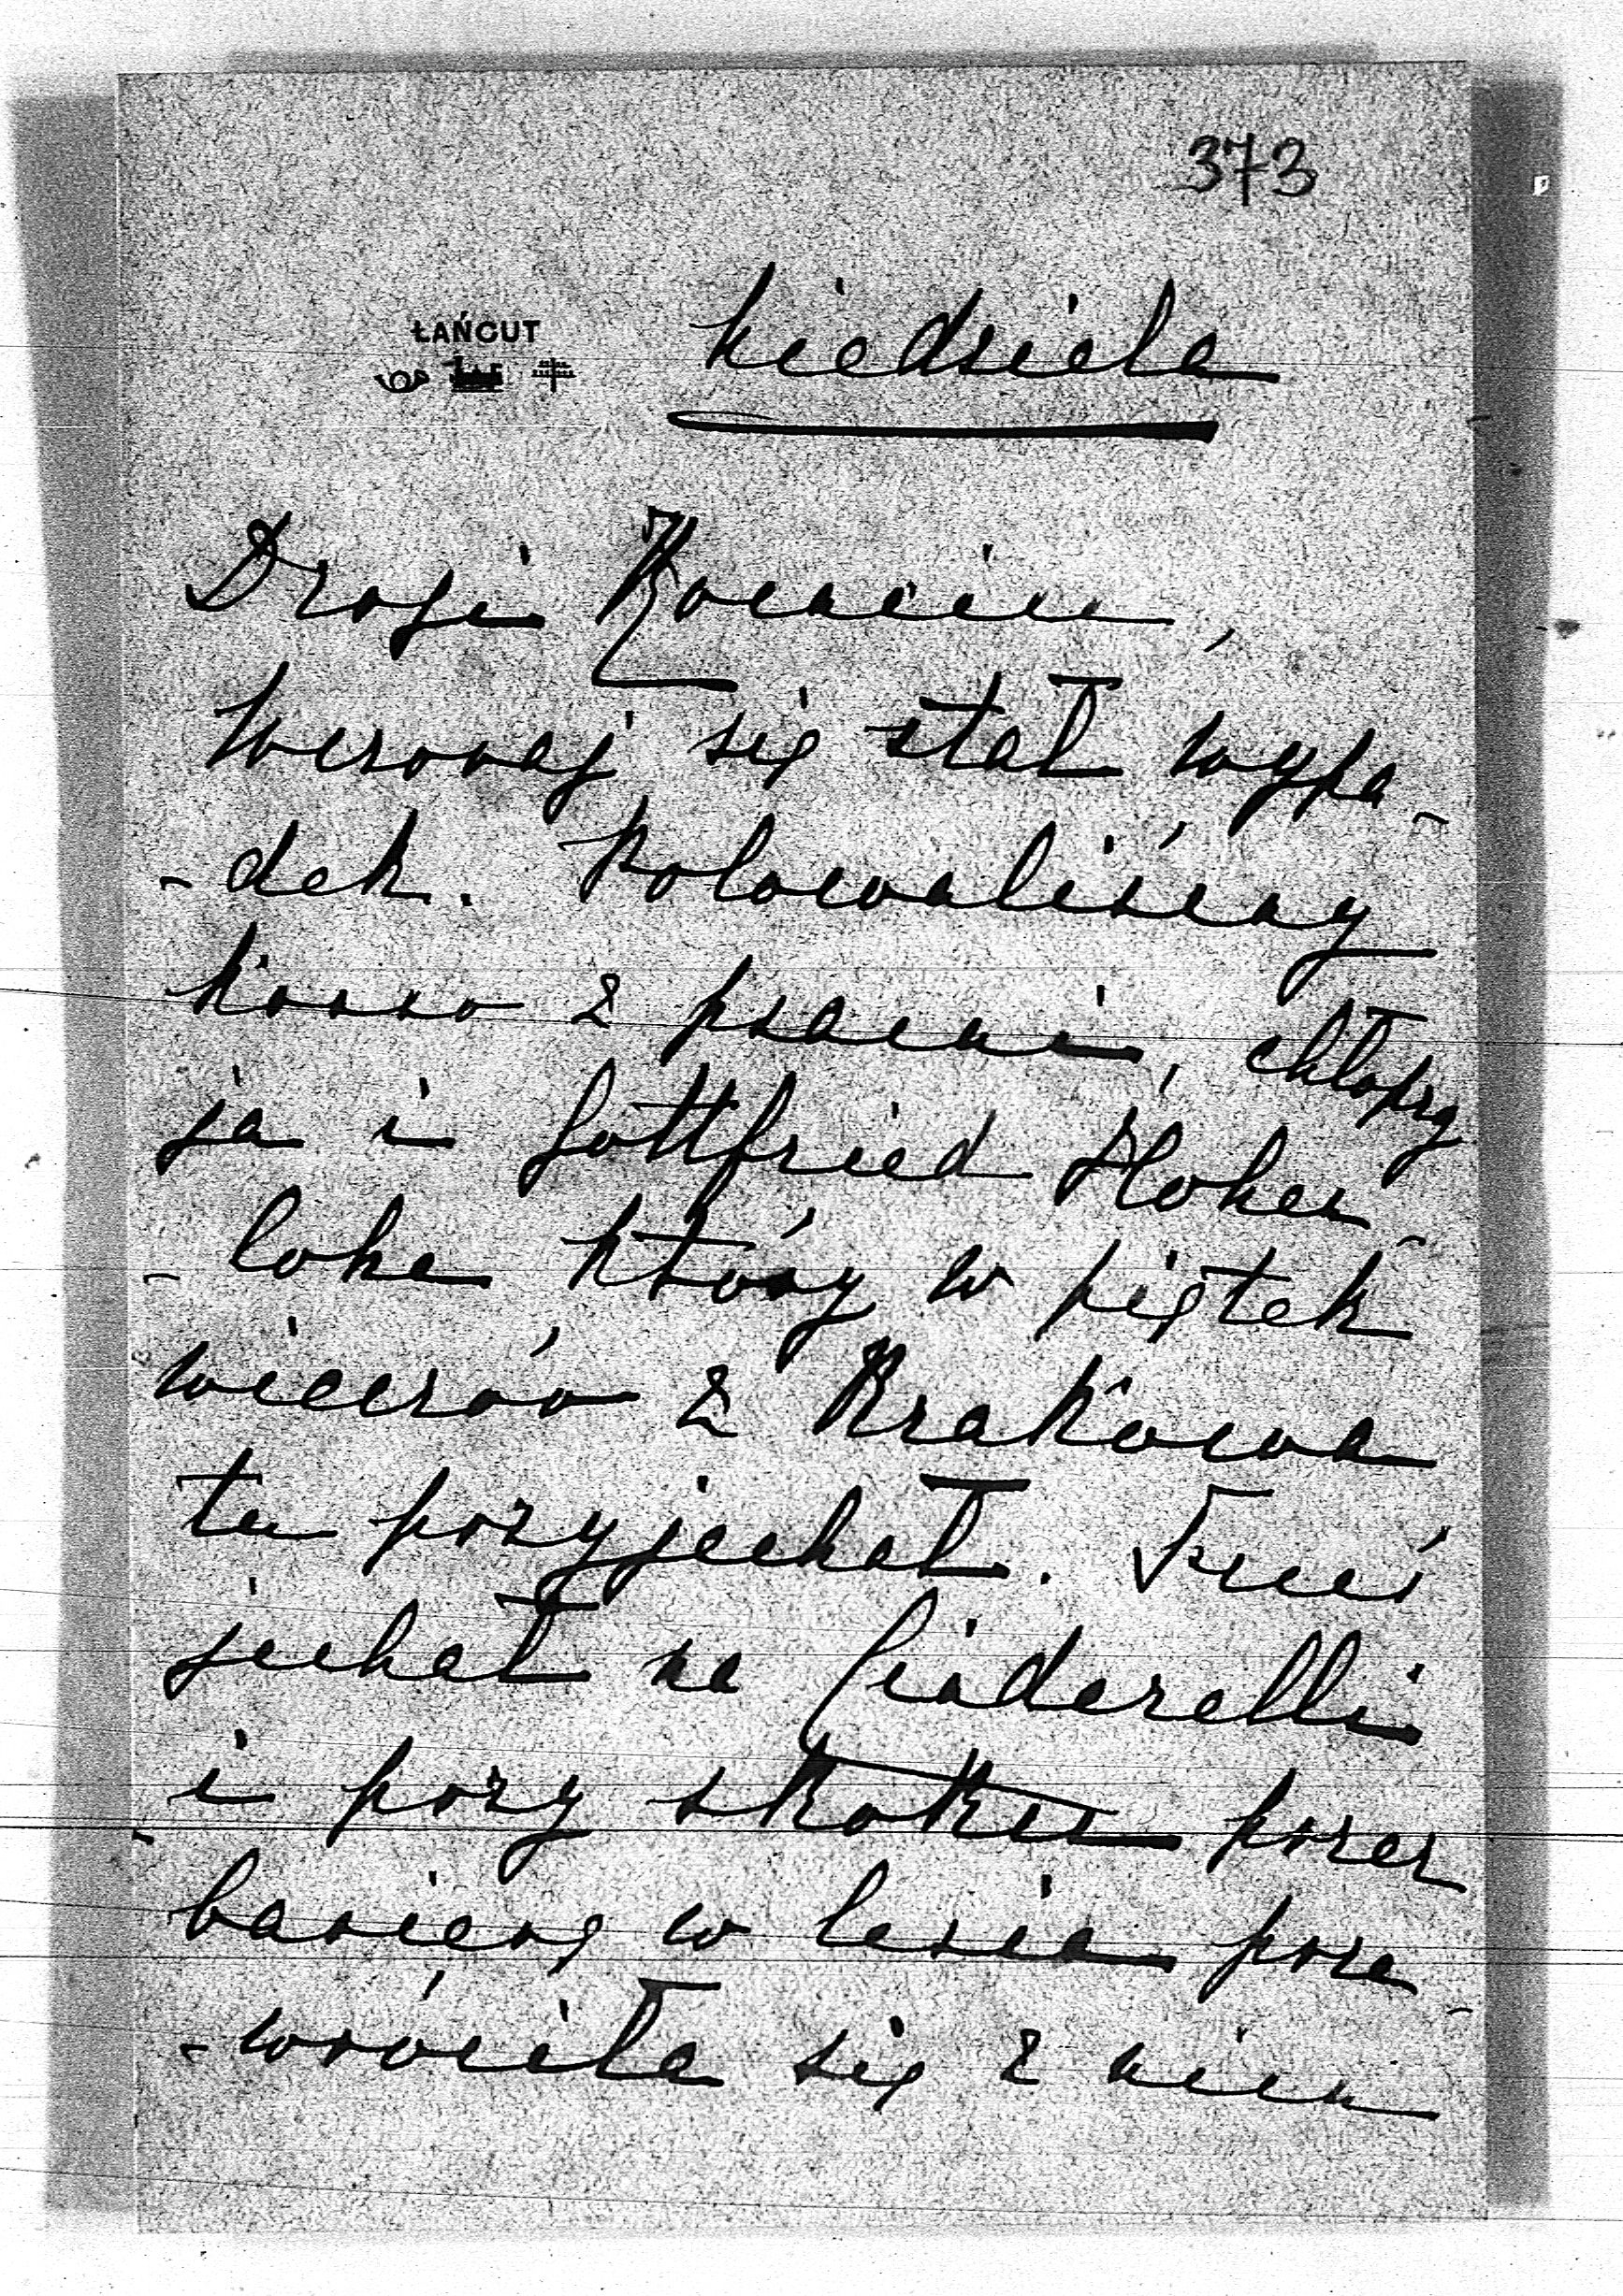 373
ŁAŃCUT
Niedziela
Drogi Romanie,
Wczoraj się stał wypa-
-dek. Polowaliśmy
konno z psami, chłopcy
ja i Gottfried Hohen-
-lohe, który w piątek
wieczór z Krakowa
tu przyjechał.
jechał na Cinderelli
i przy skoku przez
barierę w lesie prze-
-wróciła się z nim